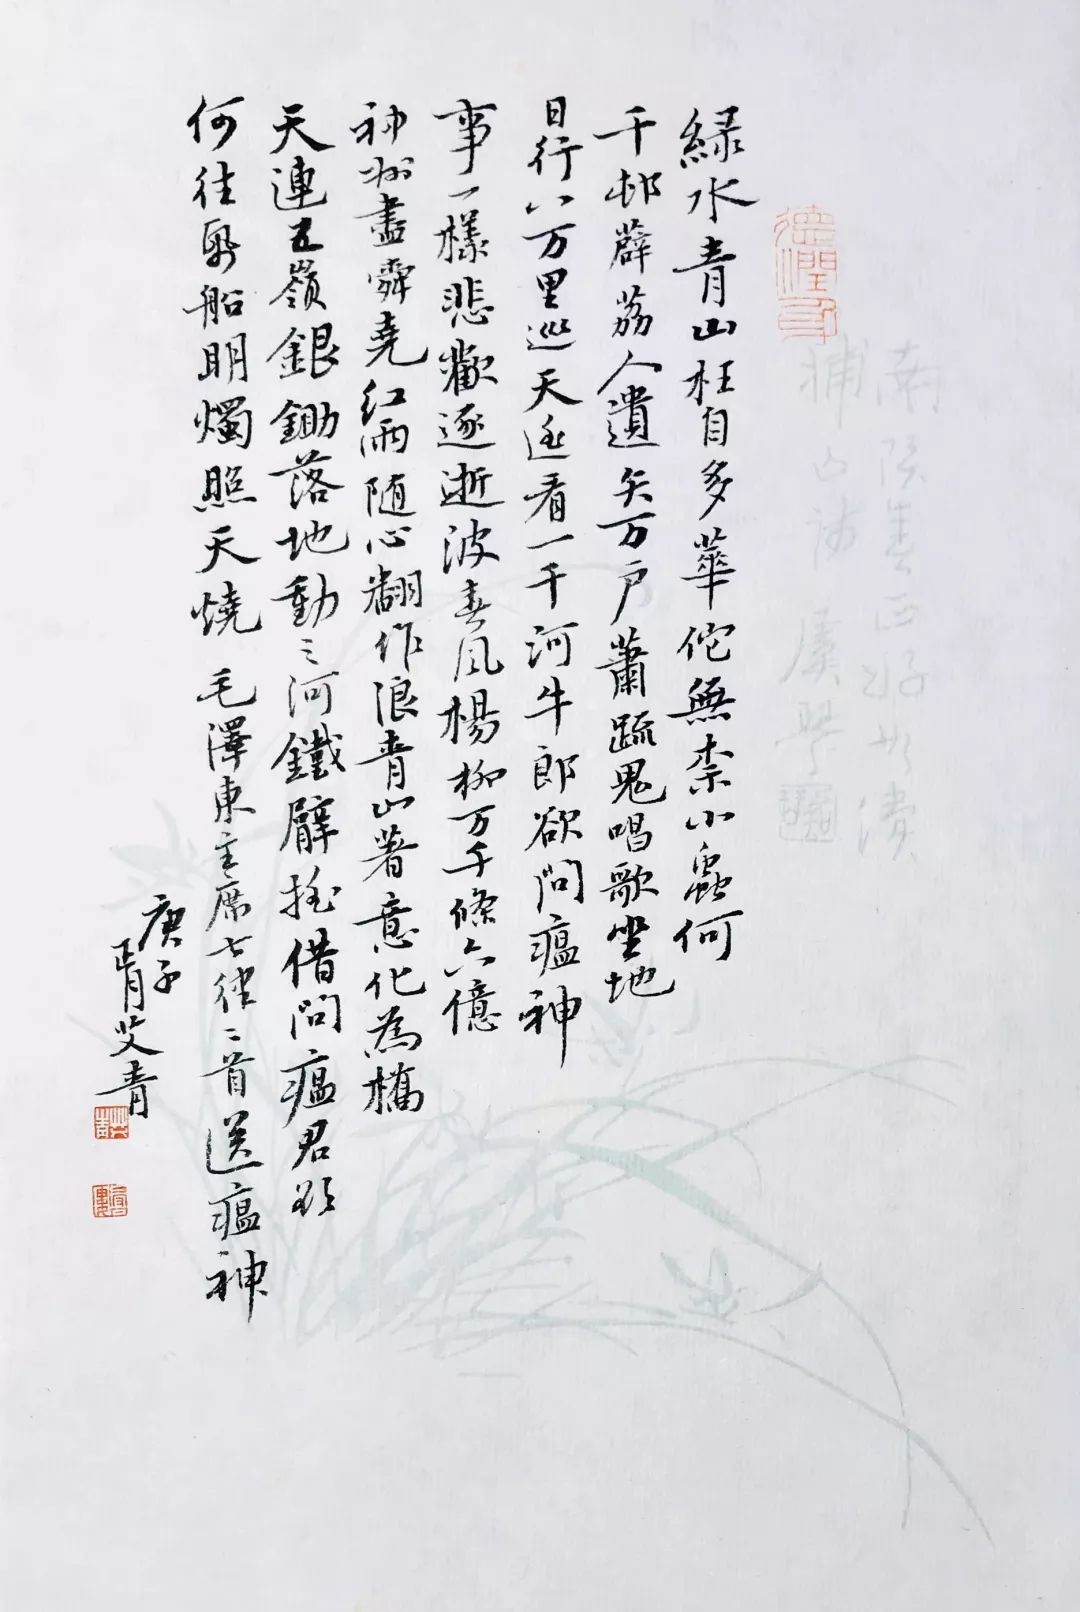 德潤身
綠水青山枉自多華佗無柰小蟲何
千邨薜荔人遺矢万户蕭疏鬼唱歌坐地
日行八万里巡天遥看一千河牛郎欲問瘟神
事一樣悲歡逐逝波春风楊柳万千條六億
神州盡舜堯红雨随心翻作浪青山著意化為橋
天連五嶺銀鋤落地動三河鐵臂摇借問瘟君欲
何往紙船明燭照天燒 毛澤東主席七律二首送瘟神
庚子
胥艾青